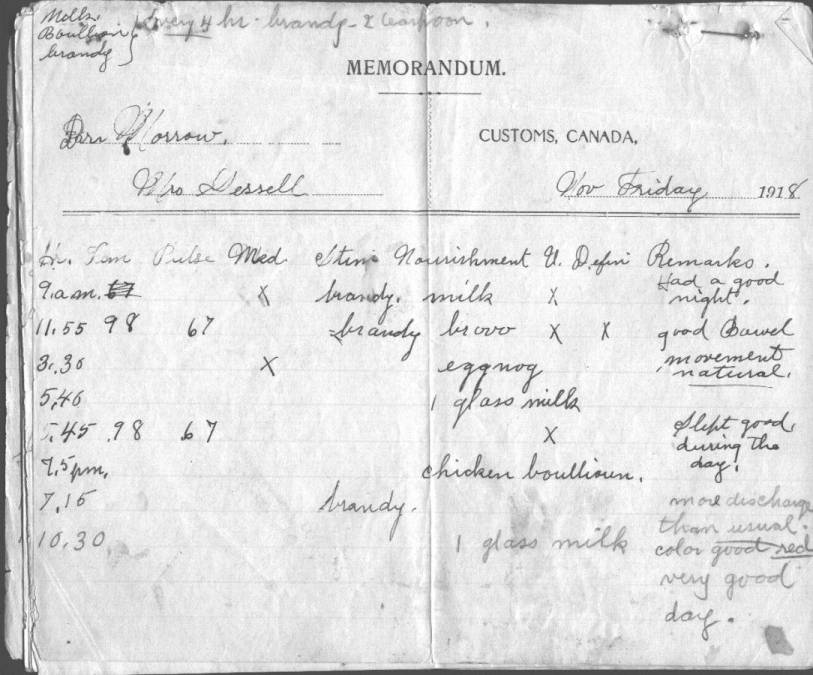 Boullion
brandy
every 4 hr - brandy - 2 teaspoon.
MEMORANDUM.
Morrow.
CUSTOMS, CANADA,
Mrs Dessell
Nov Friday 1918
Hr. Tem Pulse Med Stim Nourishment U. Defini Remarks.
9.a.m. X brandy. milk X Had a good
night.
11.55 98 67 brandy brovo X X good Bawel
3.30 X eggnog movement
natural.
5.40 1 glass milk
5.45 98 67 X Slept good
during the
day.
7.5 pm. chicken boullioun.
7.15 brandy. more discharge
than usual.
10.30 1 glass milk color good red
very good
day.